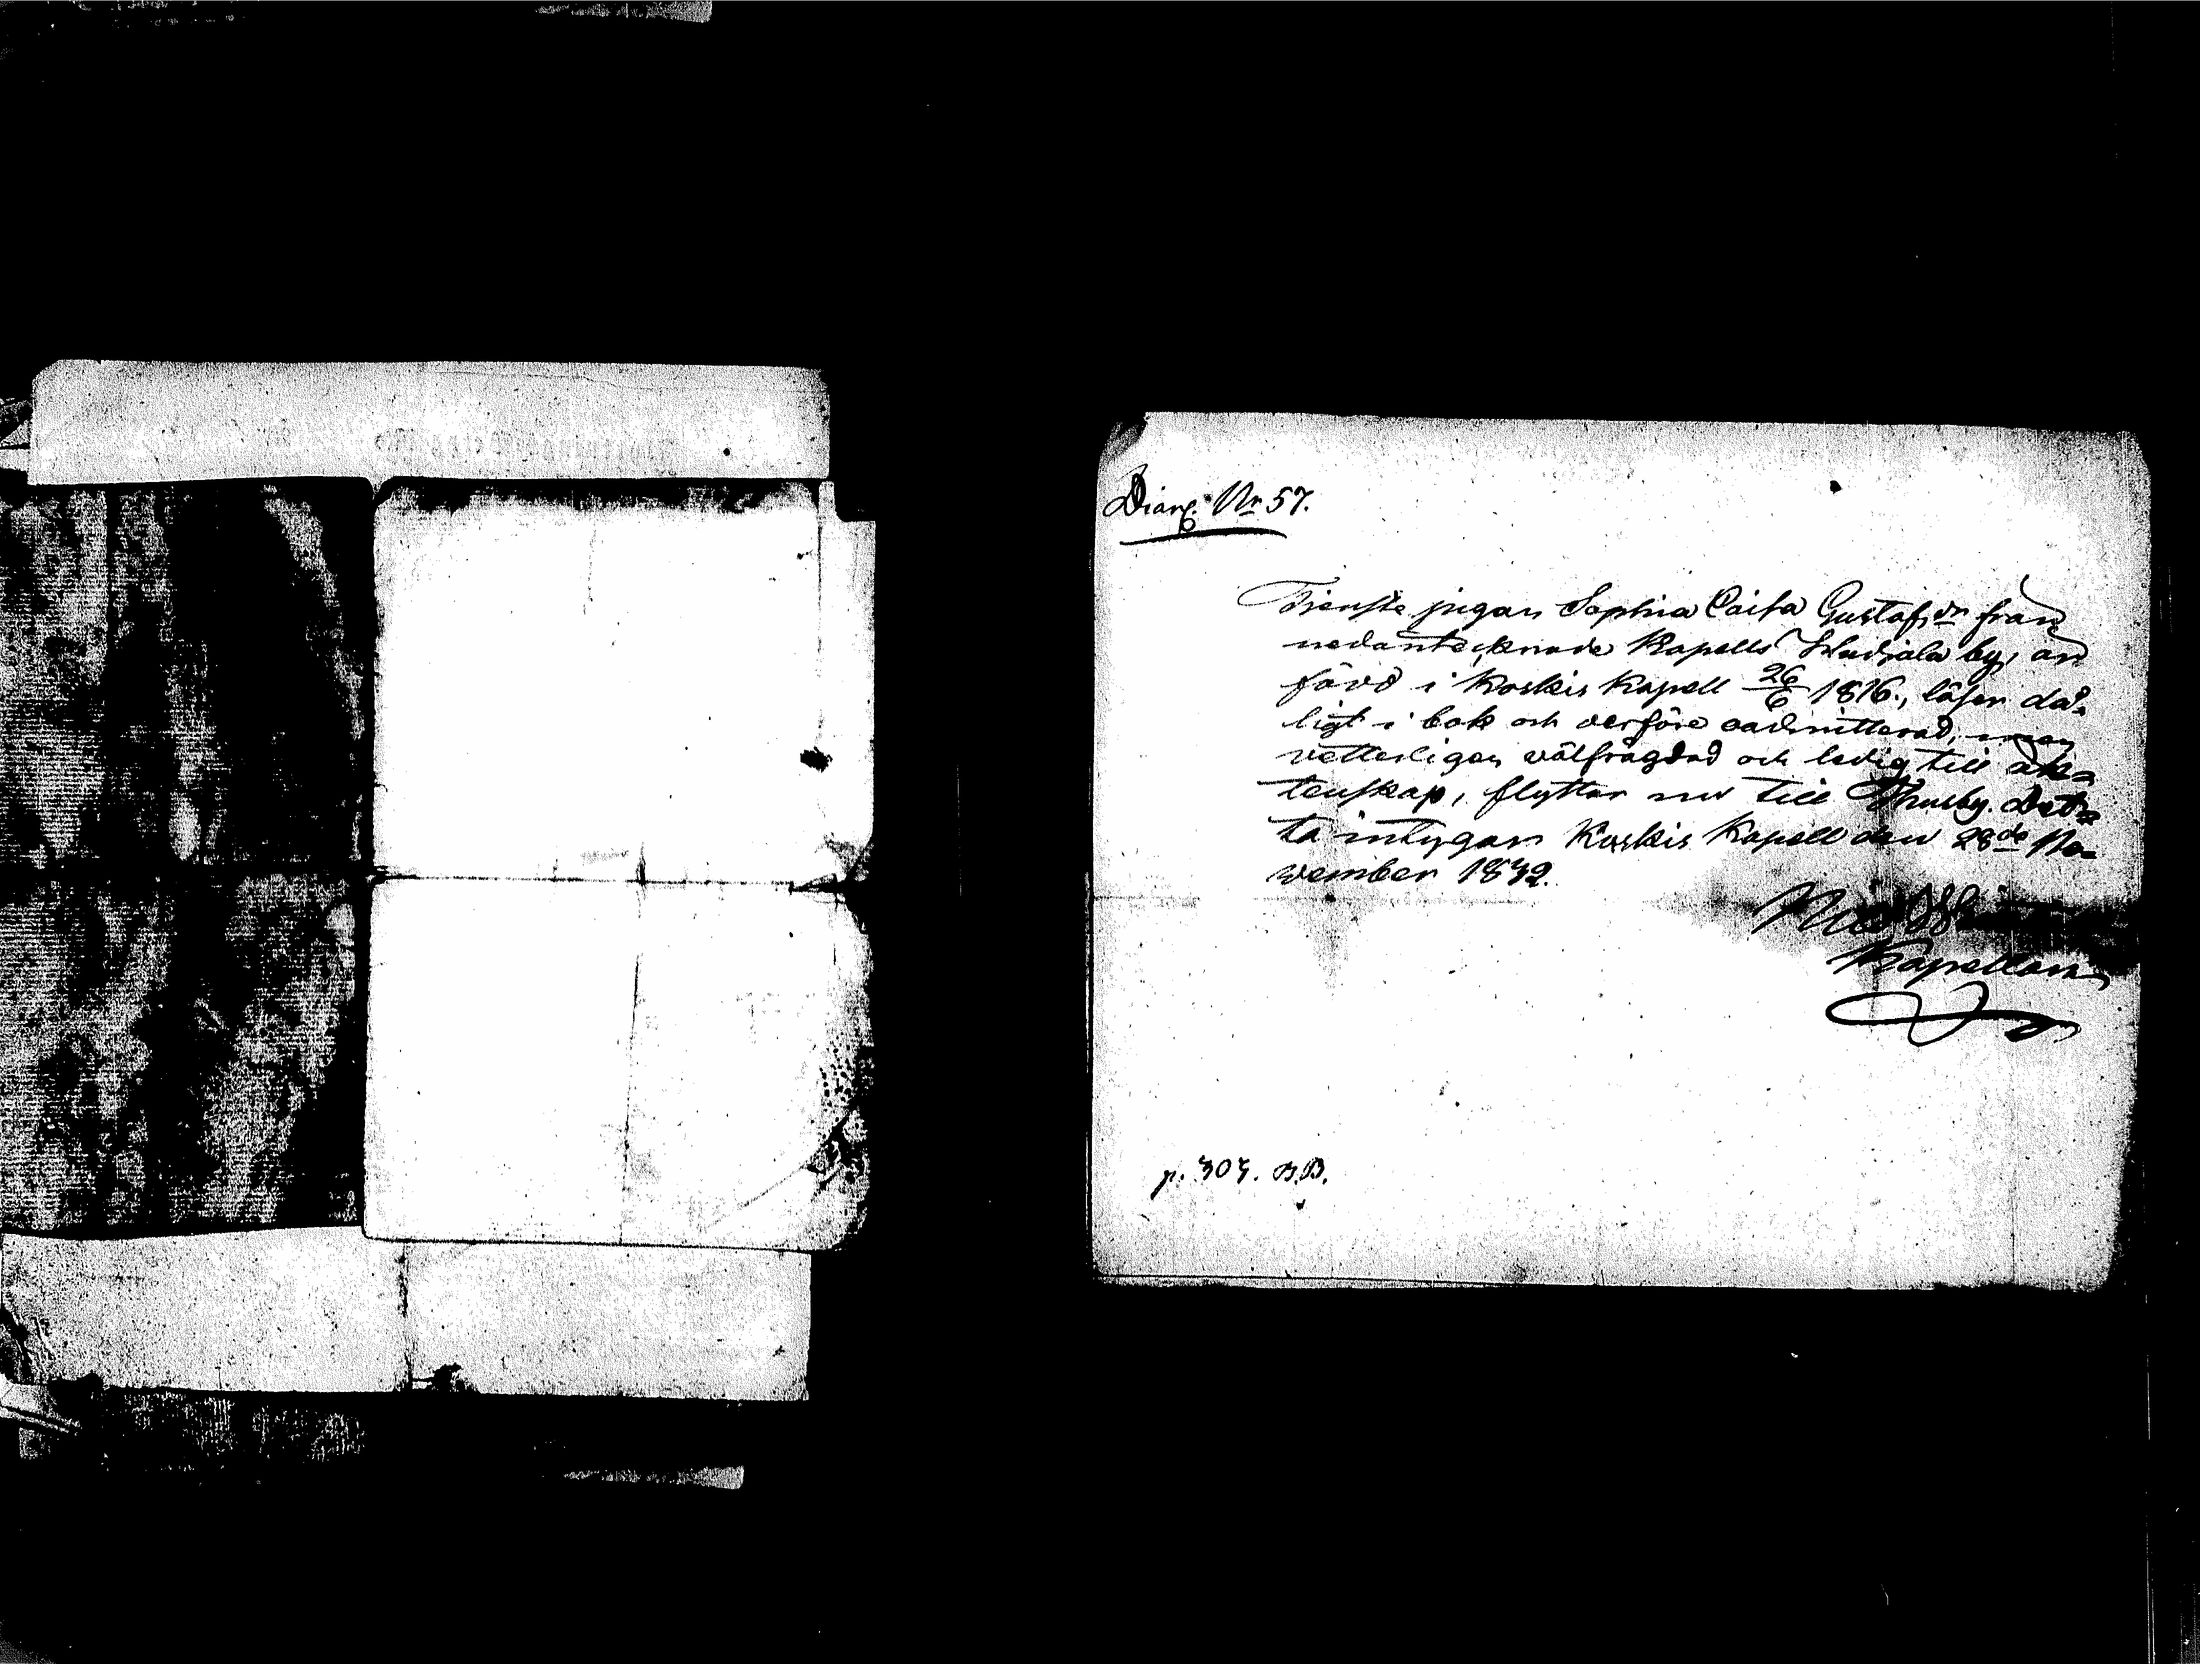 Diarf. Nr 57.
Tienste pigan Sophia Caisa Gustafsdr från
nedanteknade Kapells Hudiala by, an
förd i Koskis Kapell 26/6 1816., läser då-
ligt i bok och derföre oadmitterad, men
vetterligen välfrägdad och ledig till äk-
tenskap, flyttar nu till Thusby. Det-
ta intygar Koskis Kapell den 28de No-
vember 1842.
Kapellan
p. 303. B.B.